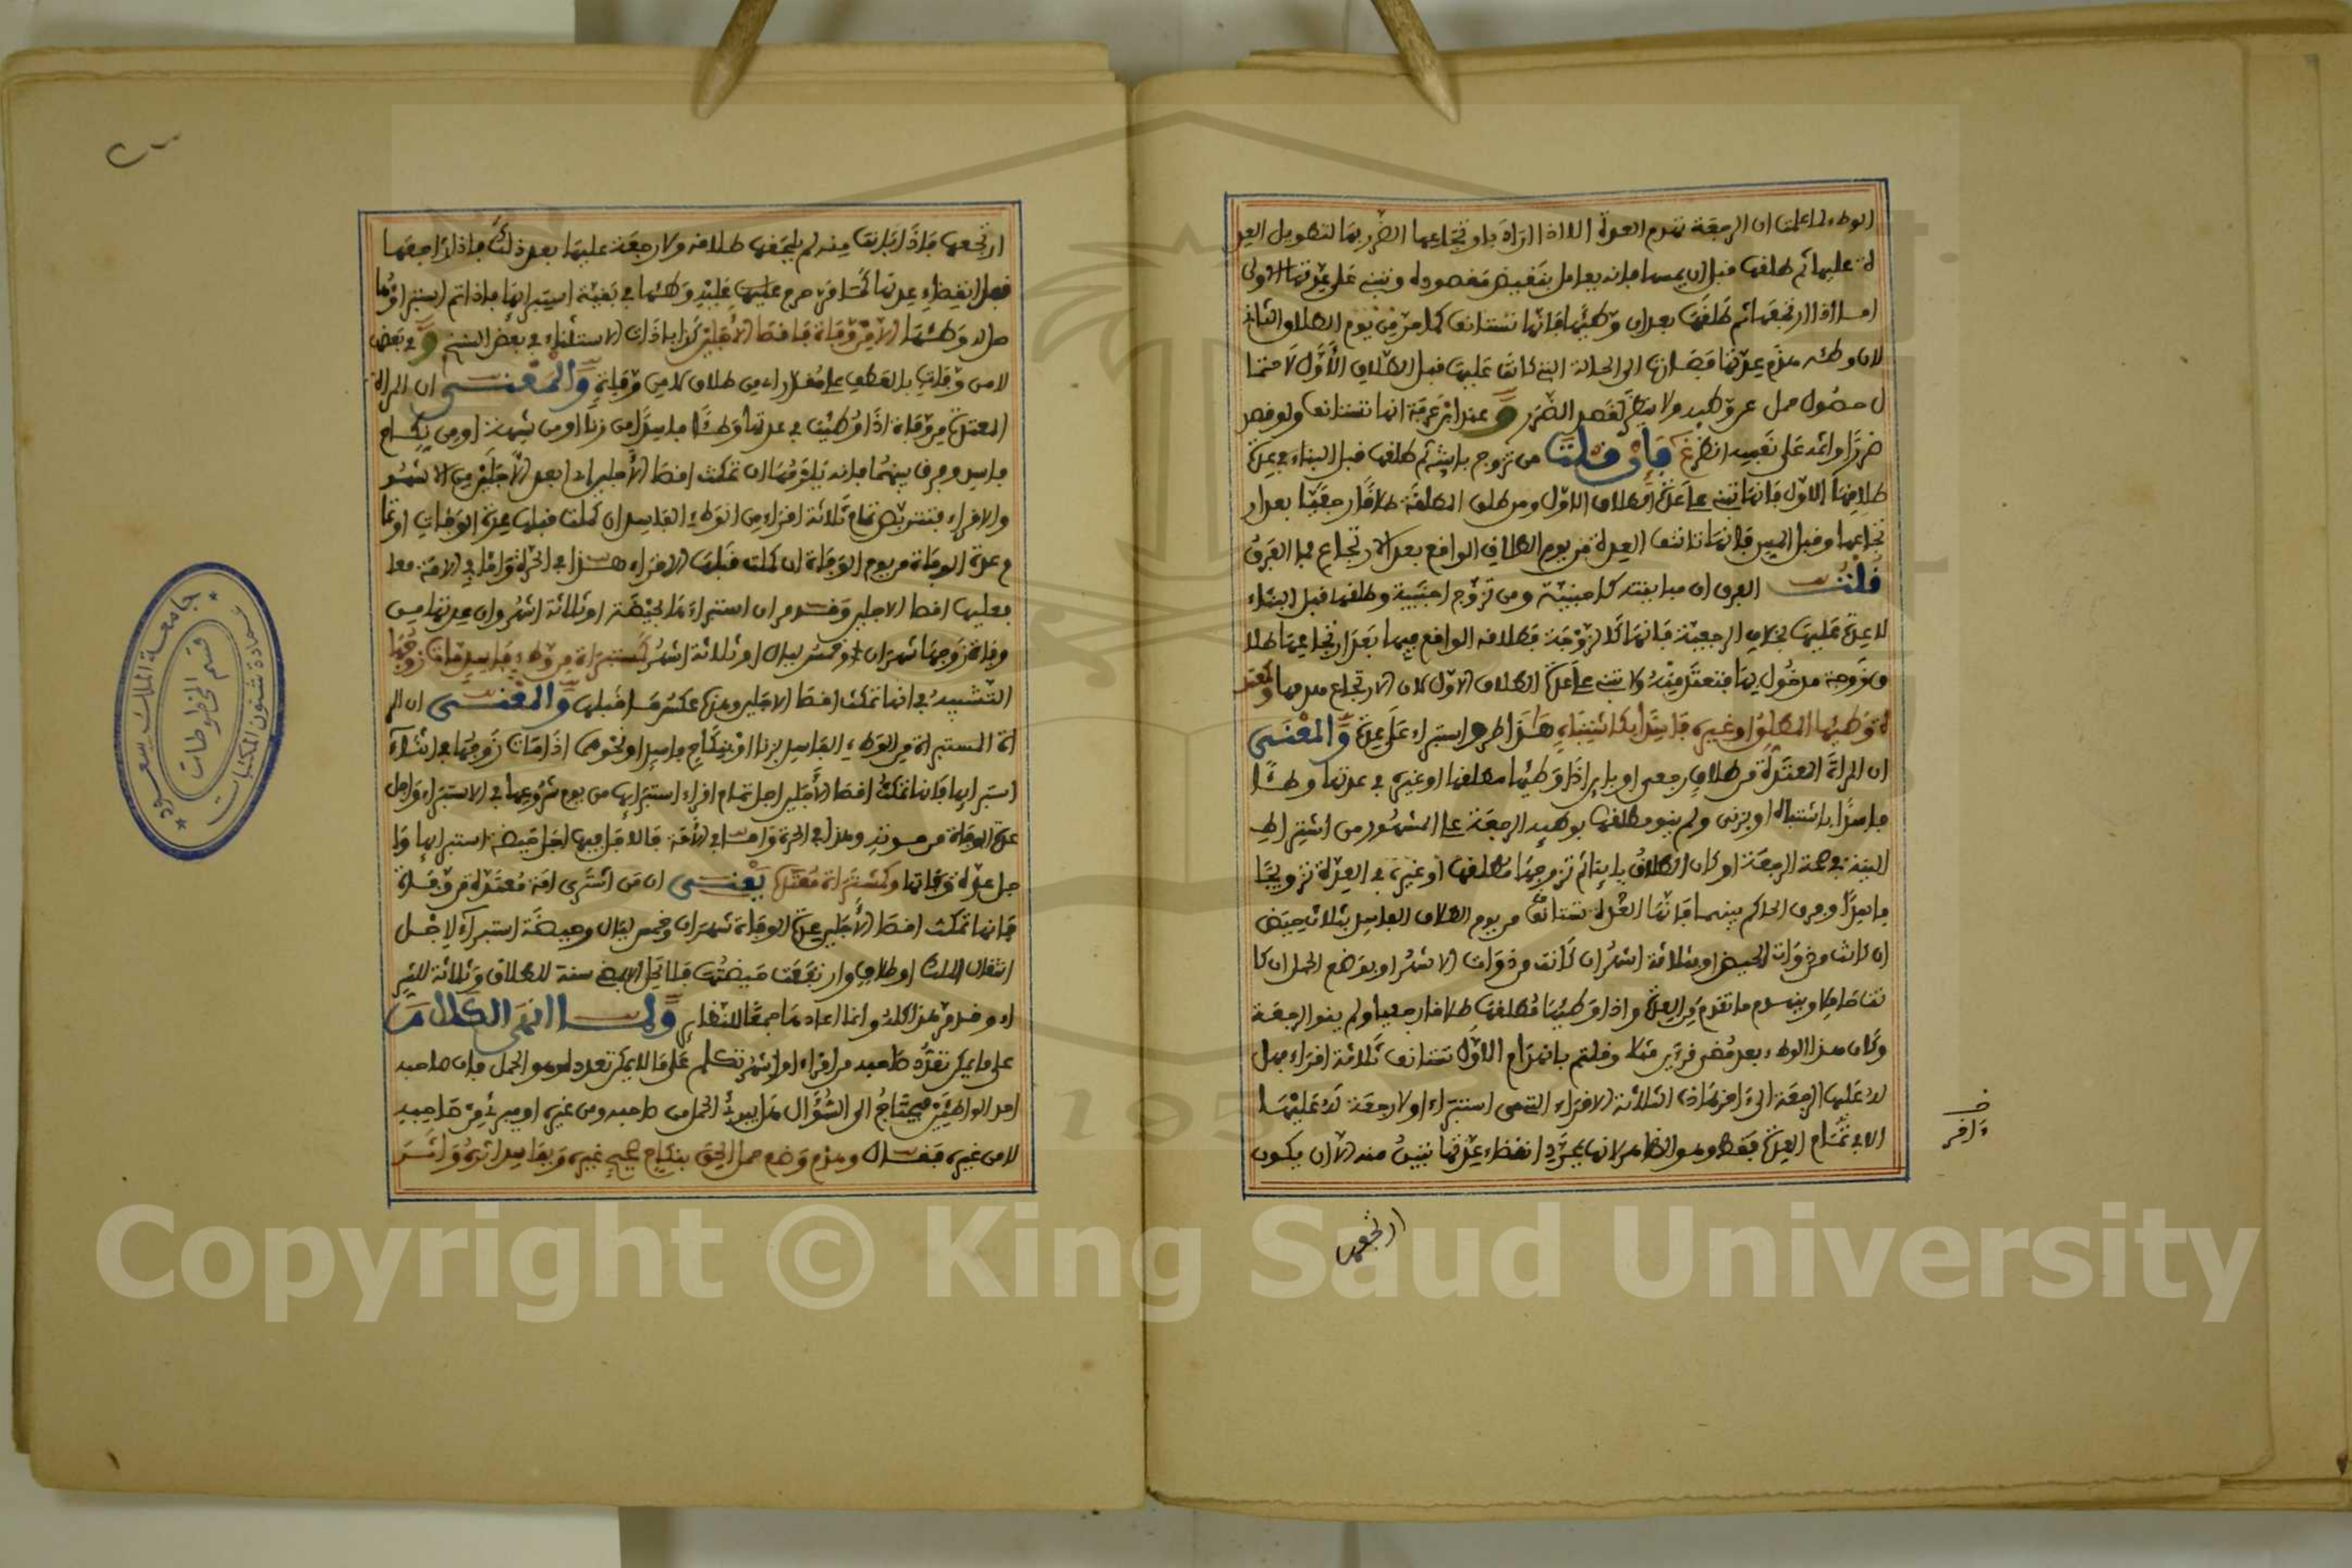 الوطء لما علمت ان الرجعة تهدم العدة اللا اذا اراد بارتجاعها الضرر بها لتطويل العد
ة عليها ثم طلقها قبل ان يمسها فانه يعامل بنقيض مقصوده وتبنى على عدتها الاولى
امـا اذا ارتجعها ثم طلقها بعد ان وطئها فانها تستانف كما مر من يوم الطلاق الثانى
لان وطئه هدم عدتها فصارت الى الحالة التى كانت عليها قبل الطلاق الاول لاحتما
ل حصول حمل عن وطئه ولا ينظر لقصد الضرر و عند ابن عرفة انها تستانف ولو قصد
ضررا واثمه على تعمده انظر غ فإن قلت من تزوج باينته ثم طلقها قبل البناء فى عدة
طلاقها الاول فانها تبنى على عدة الطلاق الاول ومن طلق المطلقة طلاقا رجعيا بعد ار
تجاعها وقبل المسيس فانها تاتنف العدة من يوم الطلاق الواقع بعد الارتجاع فما الفرق
قلت الفرق ان مباينته كاجنبية ومن تزوج اجنبية وطلقها قبل البناء
لا عدة عليها بخلاف الرجعية فانها كالزوجة فطلاقه الواقع فيها بعد ارتجاعها طلا
ق زوجة مدخول بها فتعتد منه ولا تبنى على عدة الطلاق الاول لان الارتجاع هدمها وكمعتد
ة وطئها المطلق او غيره فاسدا بكاشتباه هذا طرو استبراء على عدة والمعنى
ان المراة المعتدة من طلاق رجعى او باين اذا وطئها مطلقها او غيره فى عدتها وطئا
فاسدا باشتباه او بزنى ولم ينو مطلقها بوطئه الرجعة على المشهور من اشتراط
النية فى صحة الرجعة او كان الطلاق باينا ثم تزوجها مطلقها او غيره فى العدة تزويجا
فاسدا وفرق الحاكم بينهما فانها العدة تستانف من يوم الطلاق الفاسد بثلاث حيض
ان كانت من ذوات الحيض او بثلاثة اشهر ان كانت من ذوات الاشهر او بوضع الحمل ان كا
نت حاملا وينهدم ما تقدم من العدة واذا وطئها مطلقها طلاقا رجعيا ولم ينو الرجعة
وكان هذا الوطء بعد مضى قرءين مثلا وقلتم بانهدام الاول تستانف ثلاثة اقراء فهل
له عليها الرجعة الى اخر هاذه الثلاثة الاقراء التى هى استبراء اولا رجعة له عليها
الا فى تمام العدة فقط وهو الظاهر لانها بمجرد انقضاء عدتها تبين منه الا ان يكون
ارتجعها
ارتجعها فاذا بانت منه لم يلحقها طلاقه ولا رجعة عليها بعد ذلك فاذا راجعها
قبل انقضاء عدتها كما مر حرم عليه وطئها فى بقية استبرائها فاذا تم استبراؤها
حل له وطئها الا من وفاة فاقصا الاجلين كذا باداة الاستثناء فى بعض النسخ و فى بعض
لا من وفاة بالعطف على مقدر اى من طلاق لا من وفاة والمعنى ان المراة
المعتدة من وفاة اذا وطئت فى عدتها وطئا فاسدا من زنا او من شبهة او من نكاح
فاسد وفرق بينهما فانه يلزمها ان تمكث اقصا الاجلين اى ابعد الاجلين من الاشهر
والاقراء فتنتظر تمام ثلاثة اقراء من الوطء الفاسد ان كملت قبلها عدة الوفاة او تما
م عدة الوفاة من يوم الوفاة ان كملت قبلها الاقراء هذا فى الحرة واما فى الامة معا
فعليها اقصا الاجلين وقد مر ان استبراءها لحيضة او ثلاثة اشهر وان عدتها من
وفاة زوجها شهران وخمس ليال او ثلاثة اشهر كمستبراة من وطء فاسد مات زوجها
التشبيه فى انها تمكث اقصا الاجلين وهذه عكس ما قبلها والمعنى ان المر
اة المستبراة من الوطء الفاسد بزنا او بنكاح فاسد او نحوهما اذا مات زوجها فى اثناء
استبرائها فانها تمكث اقصا الاجلين اجل تمام اقراء استبرائها من يوم شروعها فى الاستبراء واجل
عدة الوفاة من موته وهذا فى الحرة واما فى الامة فالاجل فيها اجل حيضة استبرائها وا
جل عدة وفاتها وكمشتراة معتدة يعنى ان من اشترى امة معتدة من وفاة
فانها تمكث اقصا الاجلين عدة الوفاة شهران وخمس ليال وحيضة استبراء لاجل
انتقال الملك او طلاق وارتفعت حيضتها فلا تحل الا بمضى سنة للطلاق وثلاثة للشر
اء وقد مر هذا كله وانما اعاده هنا جمعا للنظاير ولمـا انهى الكلام
على ما يمكن تعدد صاحبه من اقراء او اشهر تكلم على ما لا يمكن تعدده وهو الحمل فان صاحبه
احد الواطئين فيحتاج الى السؤال هل يبرئ الحمل من صاحبه ومن غيره او يبرئ من صاحبه
لا من غيره فقال وهدم وضع حمل الحق بنكاح صحيح غيره وبفاسد اثره واثر
جامعة الملك سعود
عمادة شئون المكتبات
قسم المخطوطات
Copyright © King Saud University